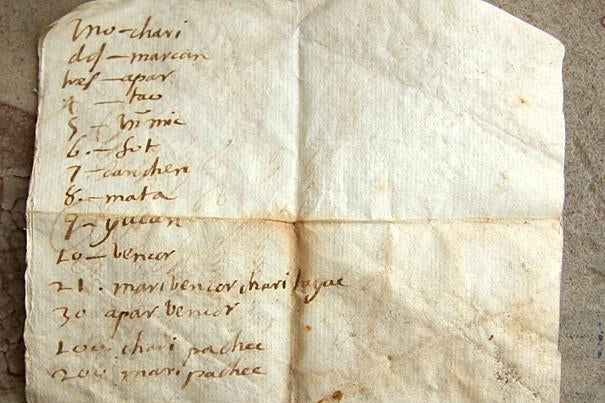 uno – chari
dos – marcan
tres – apar
4 – tao
5 – himic
6. – sut
7 – canchen
8. – mata
9 – yucan
10 – bencor
21. maribencor chari tayac
30 apar bencor
100 chari pachac
200 mari pachac